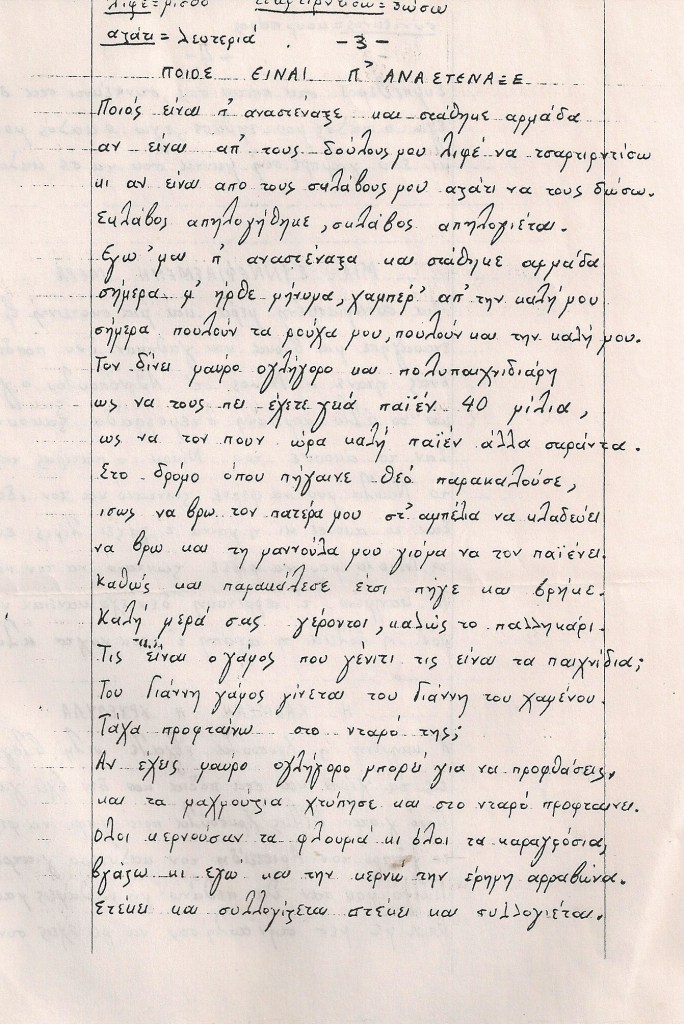 λιφέ=μισθό τσαρτιρντίσω=δώσω
αζάτι=λευτεριά
-3-
ΠΟΙΟΣ ΕΙΝΑΙ Π' ΑΝΑΣΤΕΝΑΞΕ
Ποιός είναι π' αναστέναξε και στάθηκε αρμάδα
αν είναι απ' τους δούλους μου λιφέ να τσαρτιρντίσω
κι αν είναι απο τους σκλάβους μου αζάτι να τους δώσω.
Σκλάβος απηλογήθηκε, σκλάβος απηλογιέται.
Εγω 'μαι π' αναστέναξα και στάθηκε αρμάδα
σήμερα μ' ήρθε μήνυμα, χαμπέρ' απ' την καλή μου
σήμερα πουλούν τα ρούχα μου, πουλούν και την καλή μου.
Τον δίνει μαύρο ογλήγορο και πολυπαιχνιδιάρη
ως να τους πει έχετε γειά παϊέν 40 μίλια,
ως να τον πουν ώρα καλή παϊέν άλλα σαράντα.
Στο δρόμο όπου πήγαινε Θεό παρακαλούσε,
ισως να βρω τον πατέρα μου στ' αμπέλια να κλαδεύει
να βρω και τη μαννούλα μου γιόμα να τον παϊένει.
Καθώς και παρακάλεσε έτσι πήγε και βρήκε.
Καλή μερά σας γέροντοι, καλώς το παλληκάρι.
Τις είναι ο γάμος που γένιτι τις είναι τα παιχνίδια;
Του Γιάννη γάμος γίνεται του Γιάννη του χαμένου.
Τάχα προφταίνω στο νταρό της;
Αν έχεις μαύρο ογλήγορο μπορεί για να προφθάσεις,
και τα μαχμούτζια χτύπησε και στο νταρό προφταίνει.
Ολοι κερνούσαν τα φλουριά κι όλοι τα καραγρόσια,
βγάζω κι εγώ και την κερνώ την έρημη αρραβώνα.
Στέκει και συλλογίζεται στέκει και συλλογιέται.